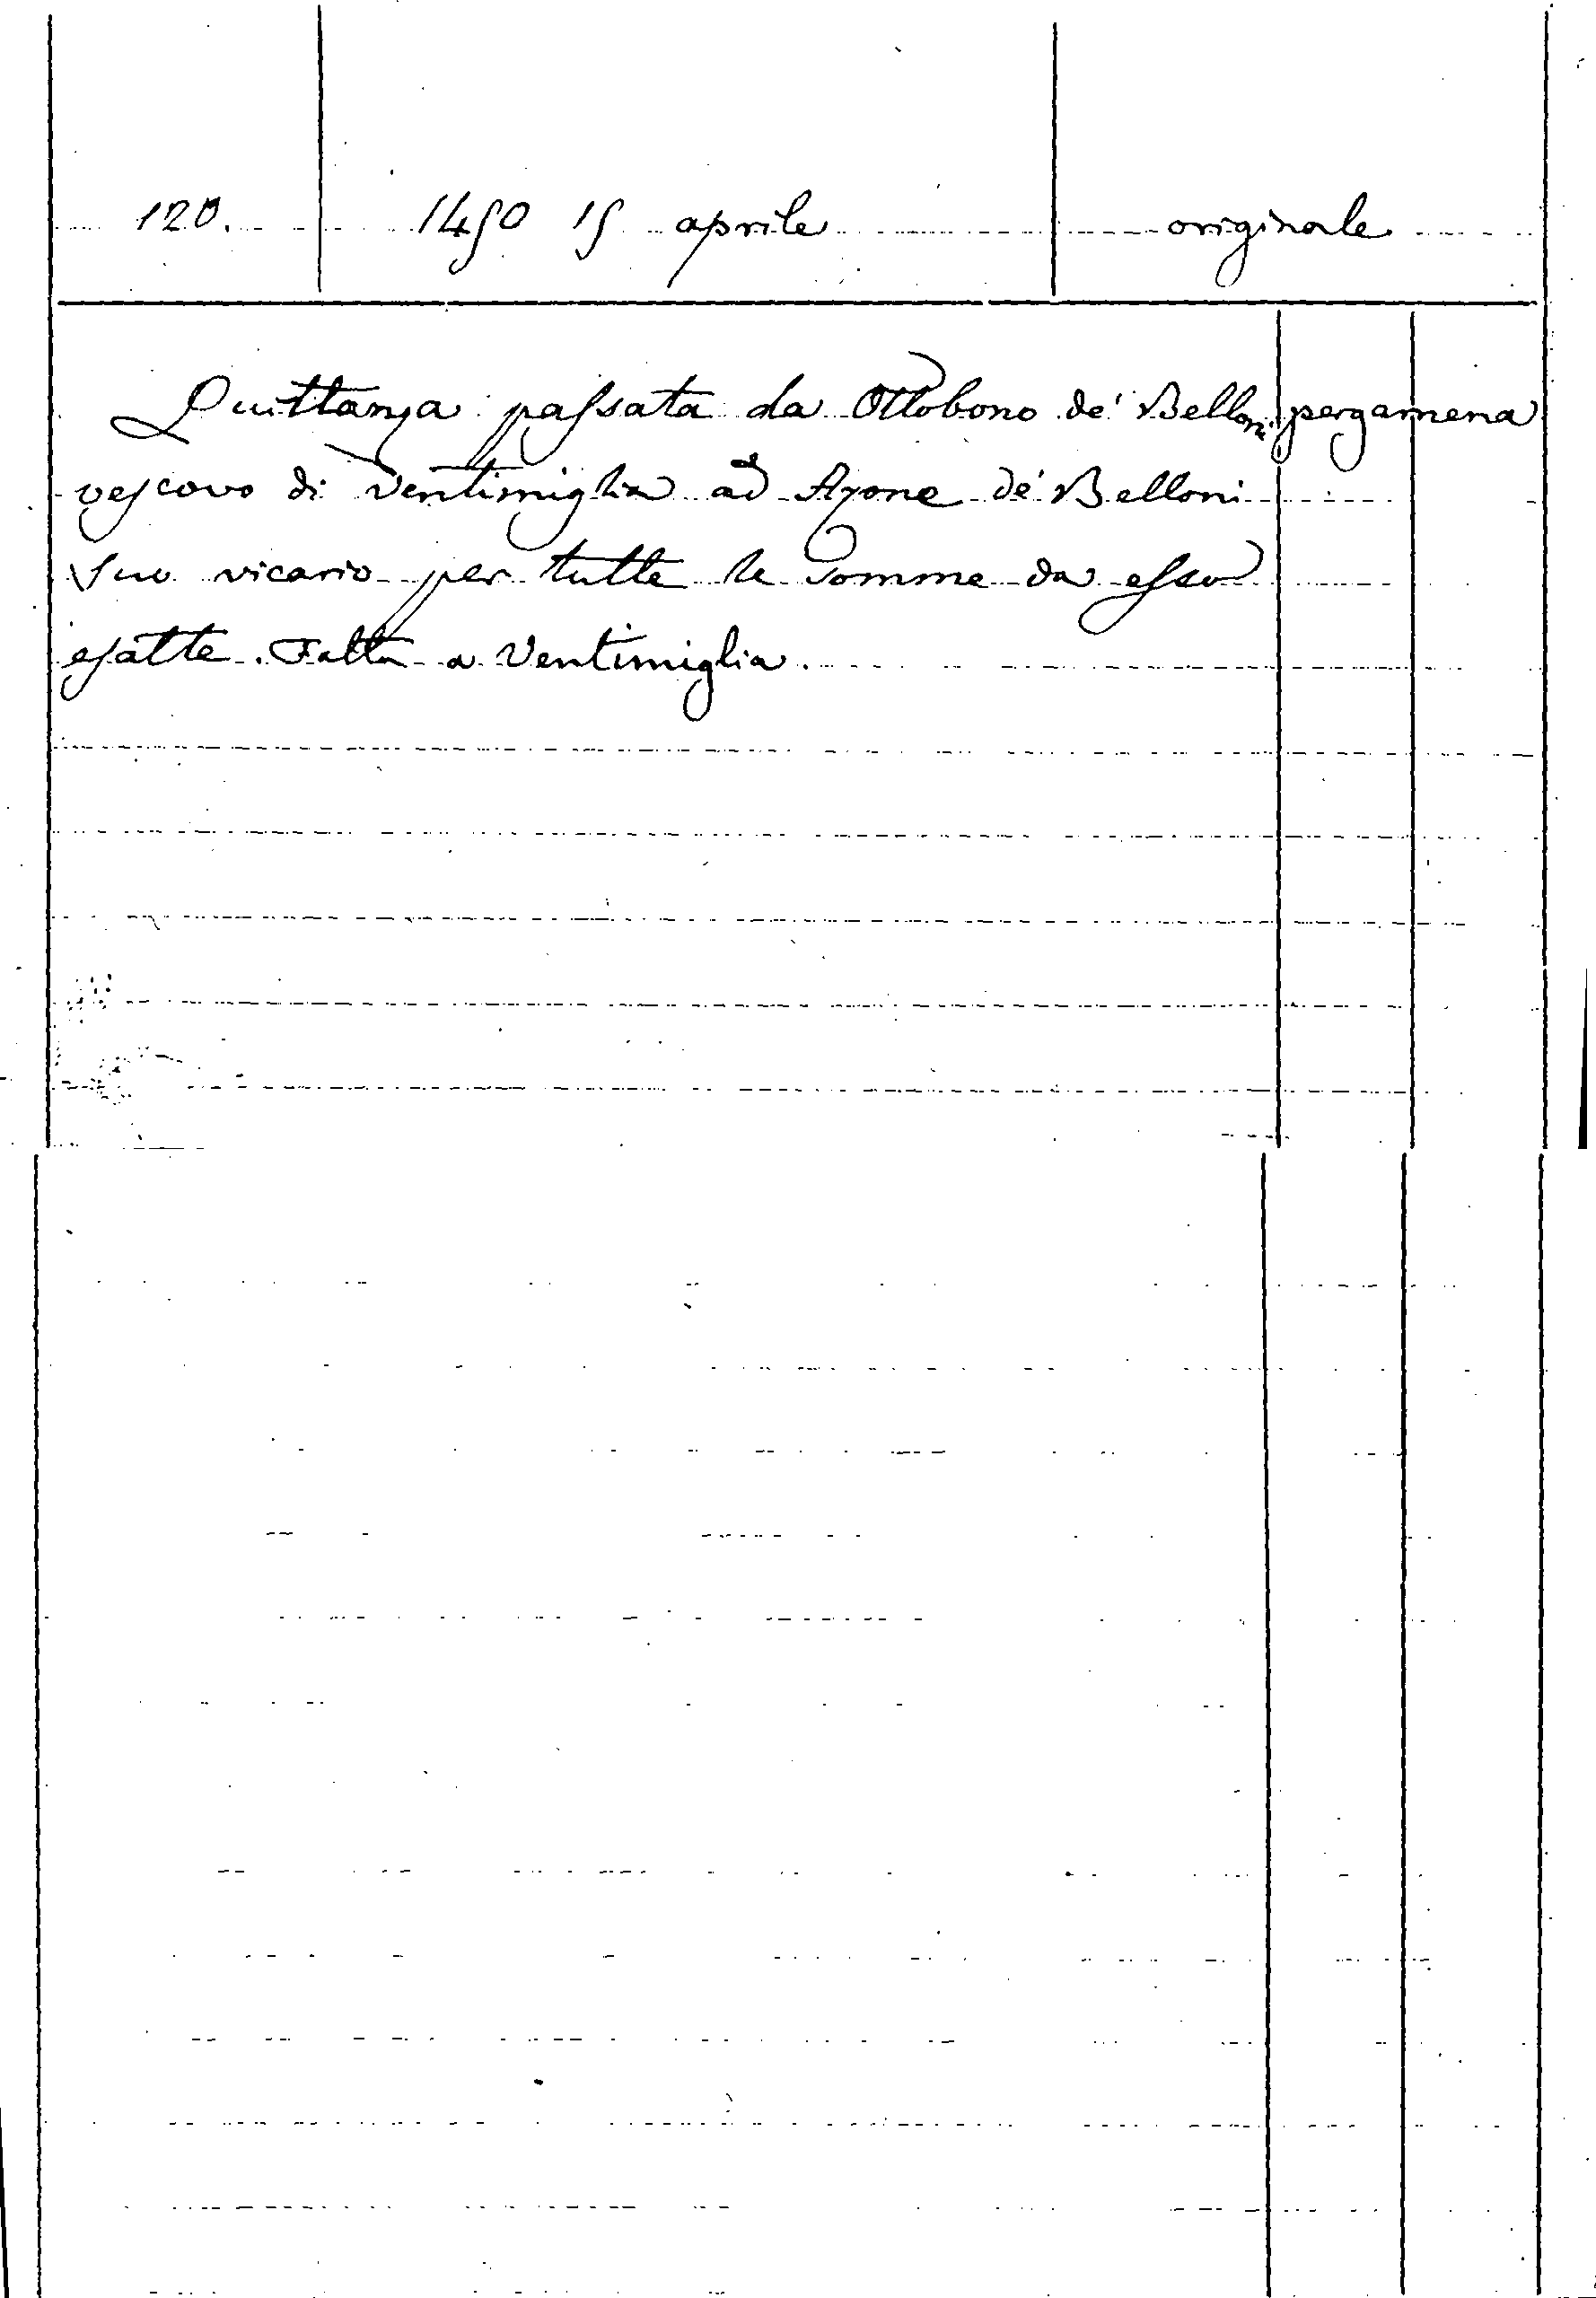 120. 1450 15 aprile originale
Quittanza passata da Ottobono de' Belloni pergamena
vescovo di Ventimiglia ad Azone de' Belloni
suo vicario per tutte le somme da esso
esatte. Fatta a Ventimiglia.